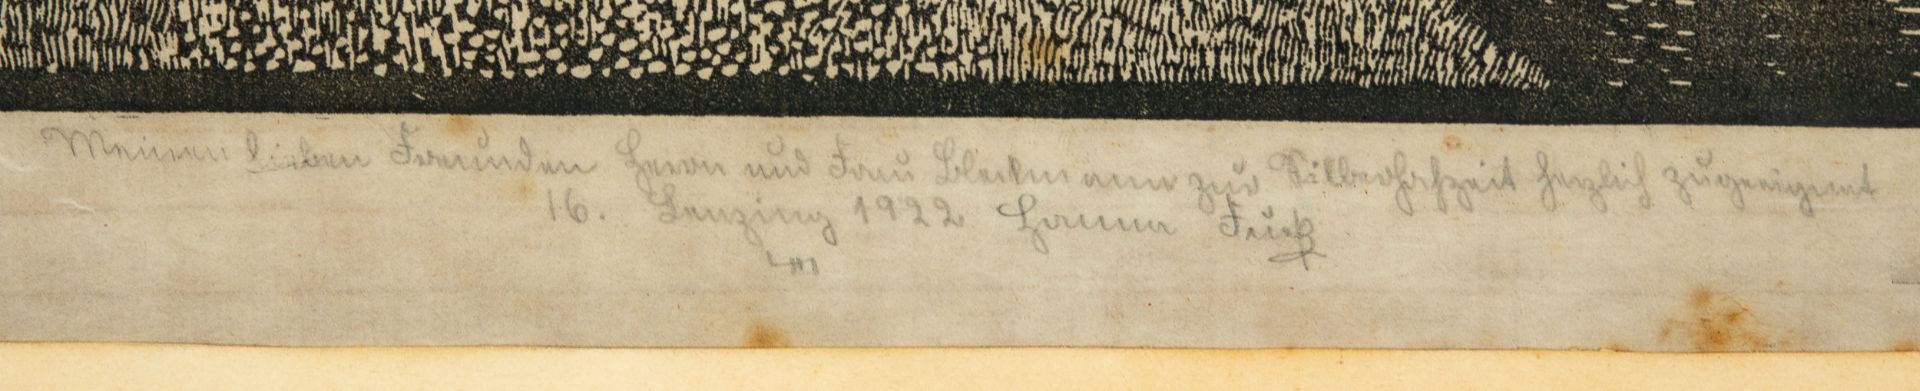 Meinen lieben Freunden Herrn und Frau Bleckmann zur Silberhochzeit herzlich zugeeignet
16. Lenzing 1922 Hanna